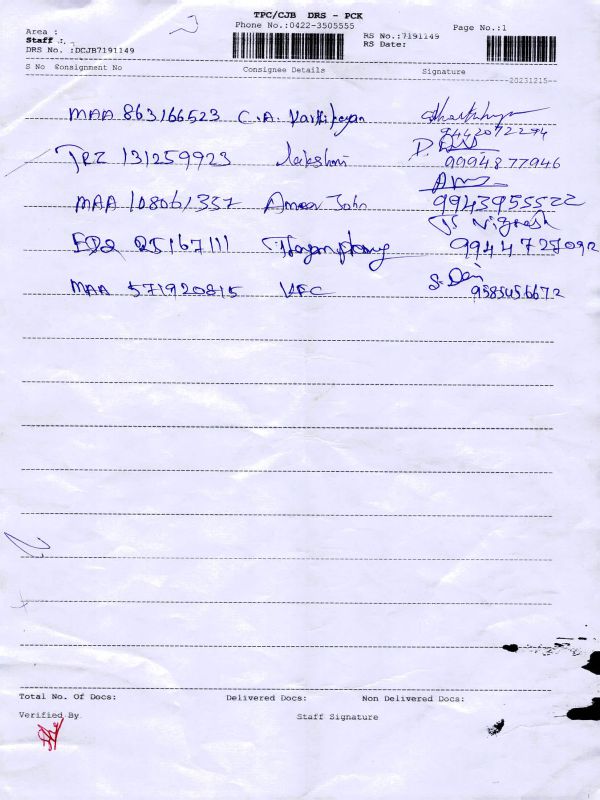 TPC/CJB DRS - PCK
Phone No.:0422-3505555
Page No.:1
Area :
Staff :
RS No.:7191149
DRS No. :DCJB7191149
RS Date:
S No Consignment No Consignee Details Signature
20231215
MAA 863166523 C.A. Karthikeyan
9442072274
TRZ 131259923 Lakshmi 9994877946
MAA 108061337 Ameer John 9943955522
25167111 9944725092
MAA 571920815 KFC 9585456672
Total No. Of Docs: Delivered Docs: Non Delivered Docs:
Verified By Staff Signature